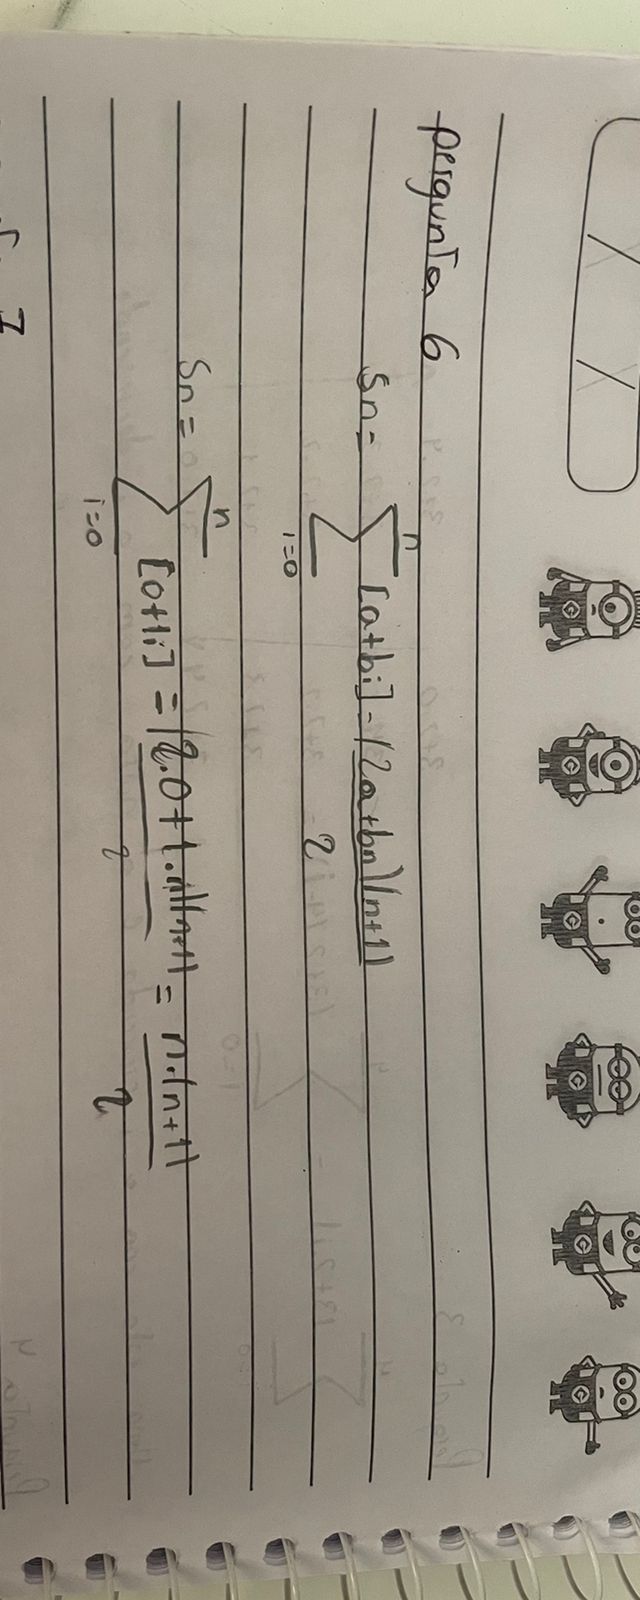 pergunta 6
Sn = n∑i=0 [a+bi] = (2a+bn)(n+1)
2
Sn = n∑i=0 [0+1i] = (2.0+1.n)(n+1) = n.(n+1)
2 2